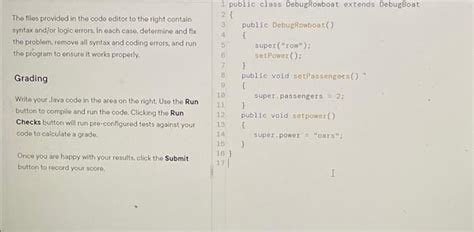 The files provided in the code editor to the right contain
syntax and/or logic errors. In each case, determine and fix
the problem, remove all syntax and coding errors, and run
the program to ensure it works properly.
Grading
Write your Java code in the area on the right. Use the Run
button to compile and run the code. Clicking the Run
Checks button will run pre-configured tests against your
code to calculate a grade.
Once you are happy with your results, click the Submit
button to record your score.
1 public class DebugRowboat extends DebugBoat
2 {
3 public DebugRowboat()
4 {
5 super("row");
6 setPower();
7 }
8 public void setPassengers()
9 {
10 super.passengers = 2;
11 }
12 public void setpower()
13 {
14 super.power = "oars";
15 }
16 }
17